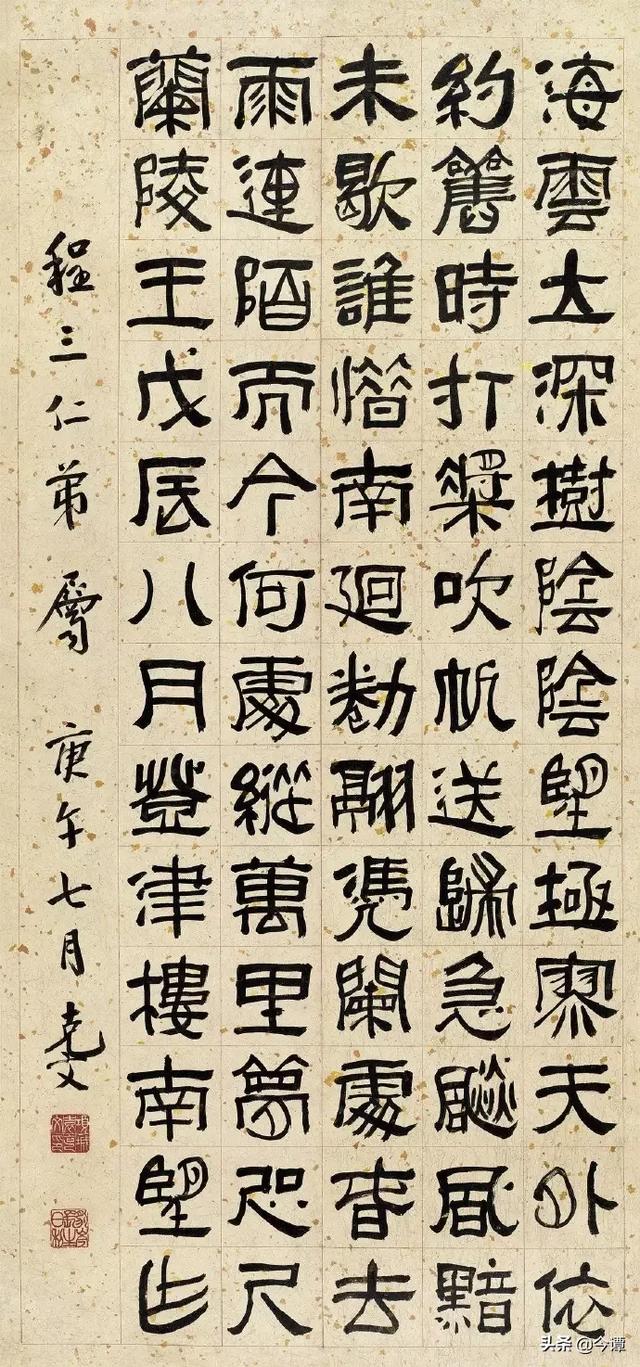 海雲大深樹陰陰望極寥天外依
約舊時打槳吹帆送歸急飈風黯
未歇誰憯南廻勌翮憑闌處春去
雨連陌而今何處縱萬里夢咫尺
蘭陵王戊辰八月登津樓南望作
程三仁弟屬 庚午七月克文
头条 @今谭